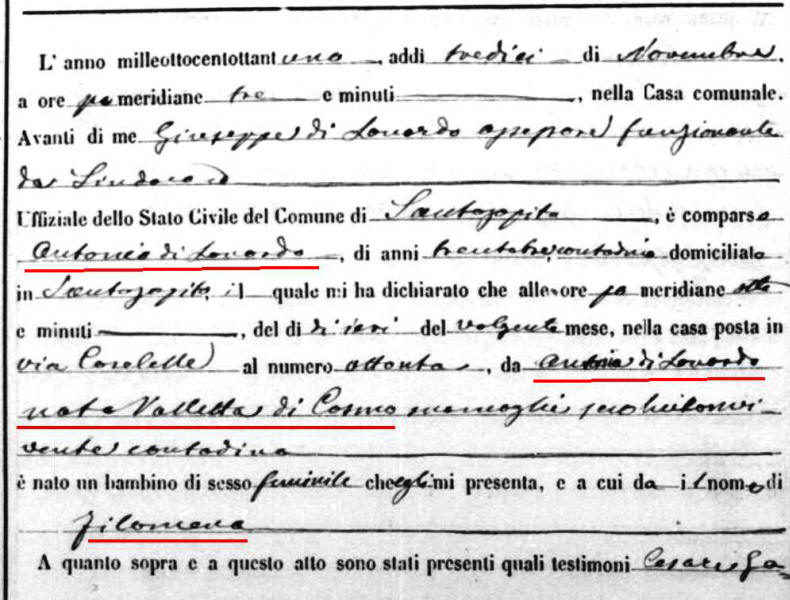 L'anno milleottocentottantuno, addi tredici di Novembre,
a ore pomeridiane tre e minuti, nella Casa comunale.
Avanti di me Giuseppe di Lonardo assessore funzionante
da Sindaco
Uffiziale dello Stato Civile del Comune di Santagapito, è comparso
Antonio di Lonardo, di anni trentatre, contadino domiciliato
in Santagapito, il quale mi ha dichiarato che alle ore po meridiane otto
e minuti, del dì di ieri del volgente mese, nella casa posta in
via Caselle al numero ottanta, da Antonia di Lonardo
nata Valletta di Cosmo sua moglie seco lui convi-
vente contadina
è nato un bambino di sesso feminile che egli mi presenta, e a cui da il nome di
Filomena
A quanto sopra e a questo atto sono stati presenti quali testimoni Cesare